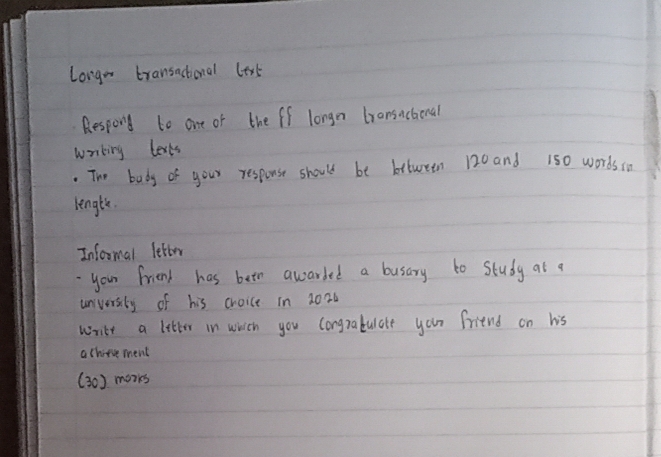 Longer transactional text
Respond to one of the ff longer transactional
writing texts
• The body of your response should be between 120 and 150 words in
length.
Informal letter
- your friend has been awarded a busary to study at a
university of his choice in 2026
Write a letter in which you congratulate your friend on his
achievement
(30) marks